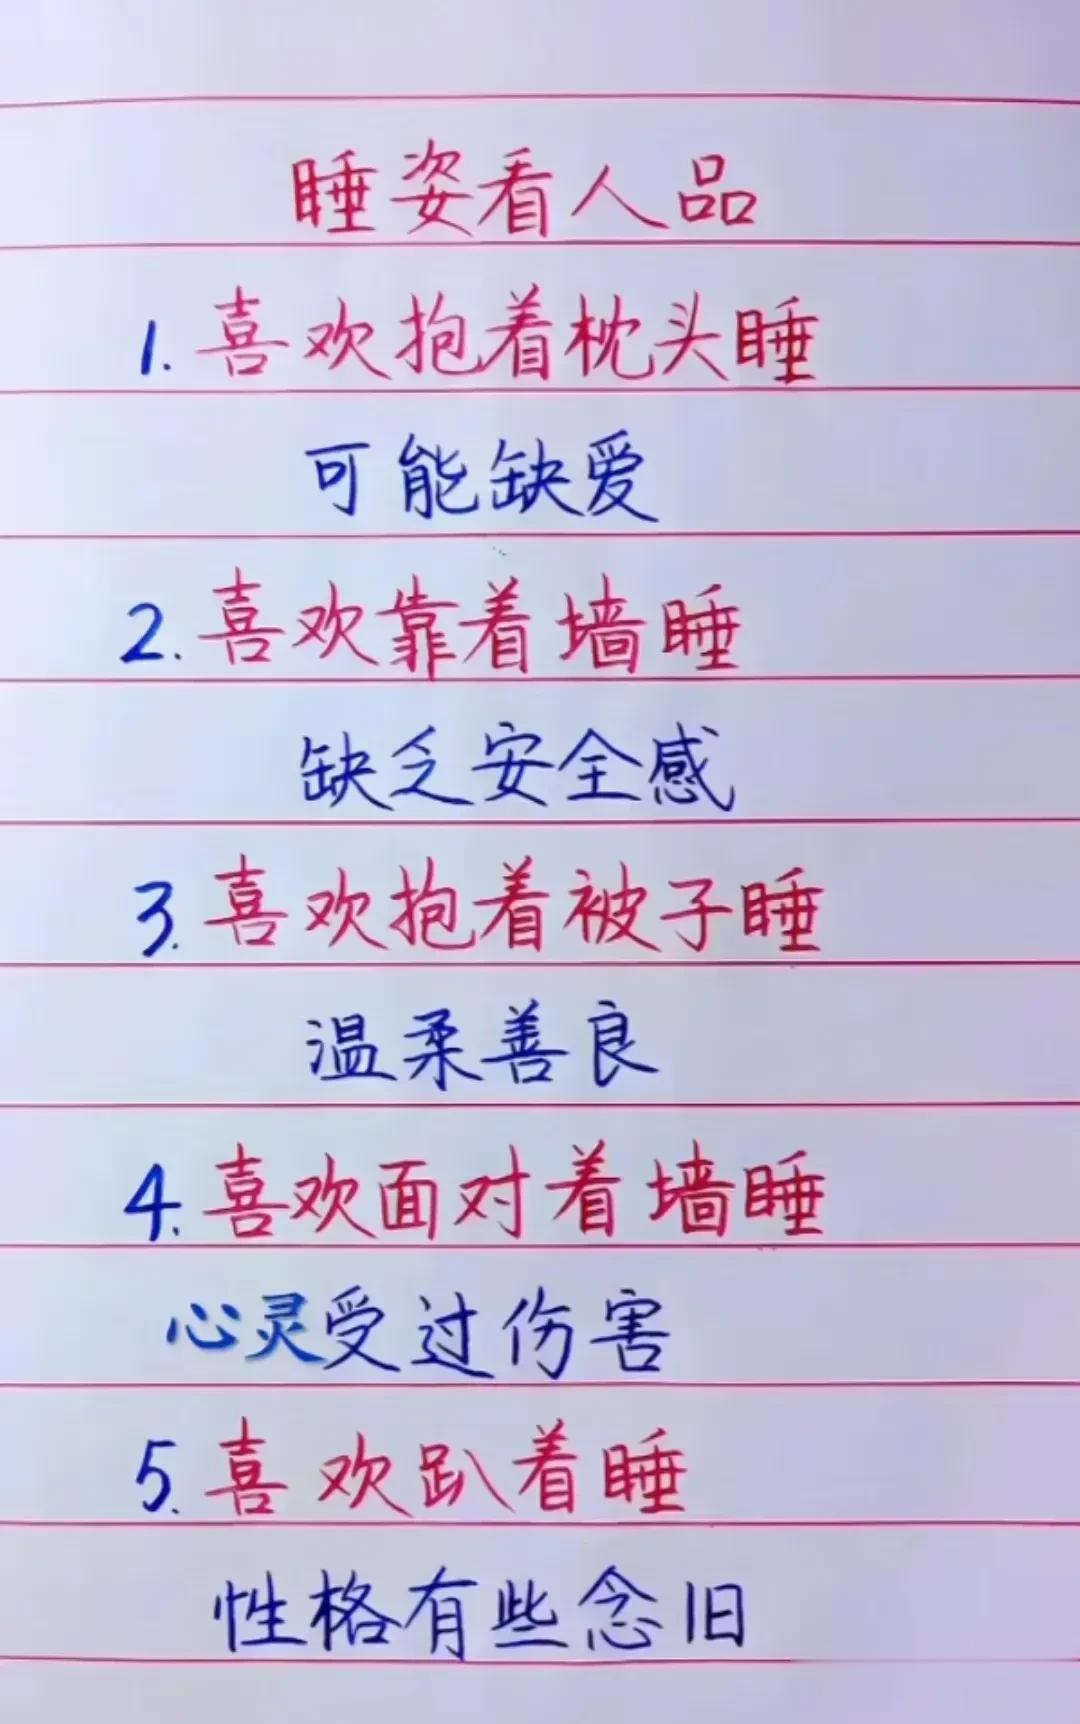 睡姿看人品
1. 喜欢抱着枕头睡
可能缺爱
2. 喜欢靠着墙睡
缺乏安全感
3. 喜欢抱着被子睡
温柔善良
4. 喜欢面对着墙睡
心灵受过伤害
5. 喜欢趴着睡
性格有些念旧